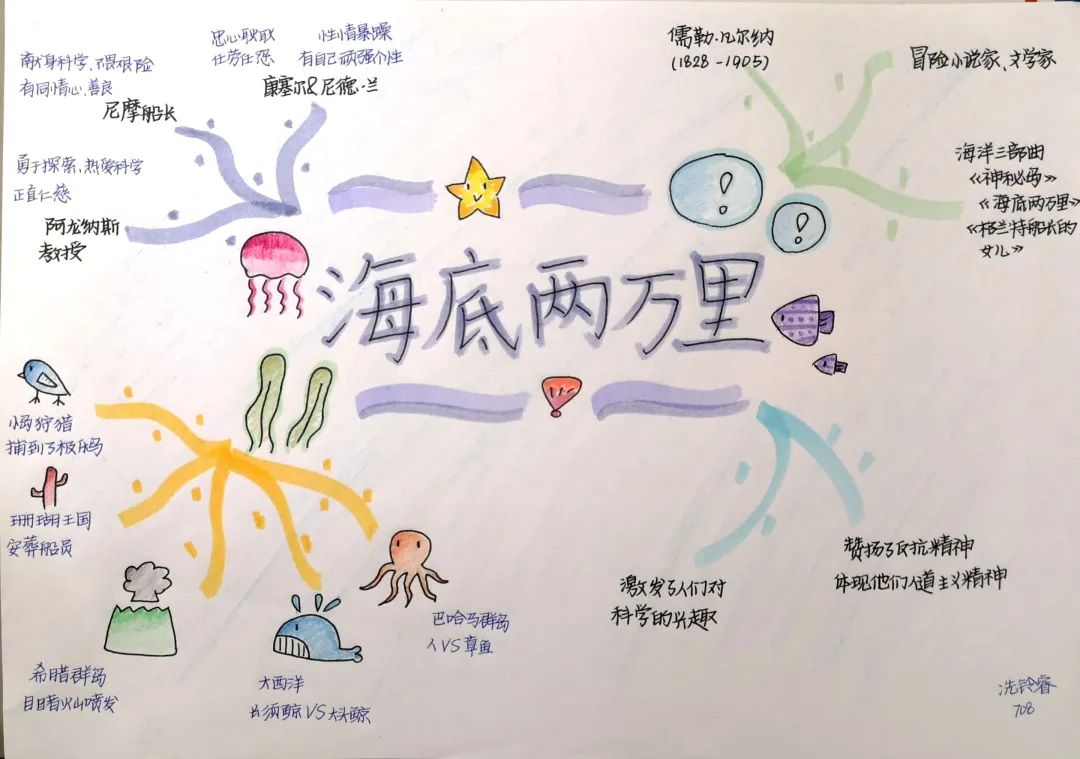 献身科学、不畏艰险
有同情心、善良
尼摩船长
忠心耿耿
任劳任怨
性情暴躁
有自己顽强个性
康塞尔&尼德·兰
勇于探索、热爱科学
正直仁慈
阿龙纳斯
教授
儒勒·凡尔纳
(1828-1905)
冒险小说家、文学家
海洋三部曲
《神秘岛》
《海底两万里》
《格兰特船长的
女儿》
海底两万里
小岛狩猎
捕到了极乐鸟
珊瑚王国
安葬船员
希腊群岛
目睹火山喷发
大西洋
长须鲸VS大头鲸
巴哈马群岛
人VS章鱼
激发了人们对
科学的兴趣
赞扬了反抗精神
体现他们人道主义精神
冼铃睿
708